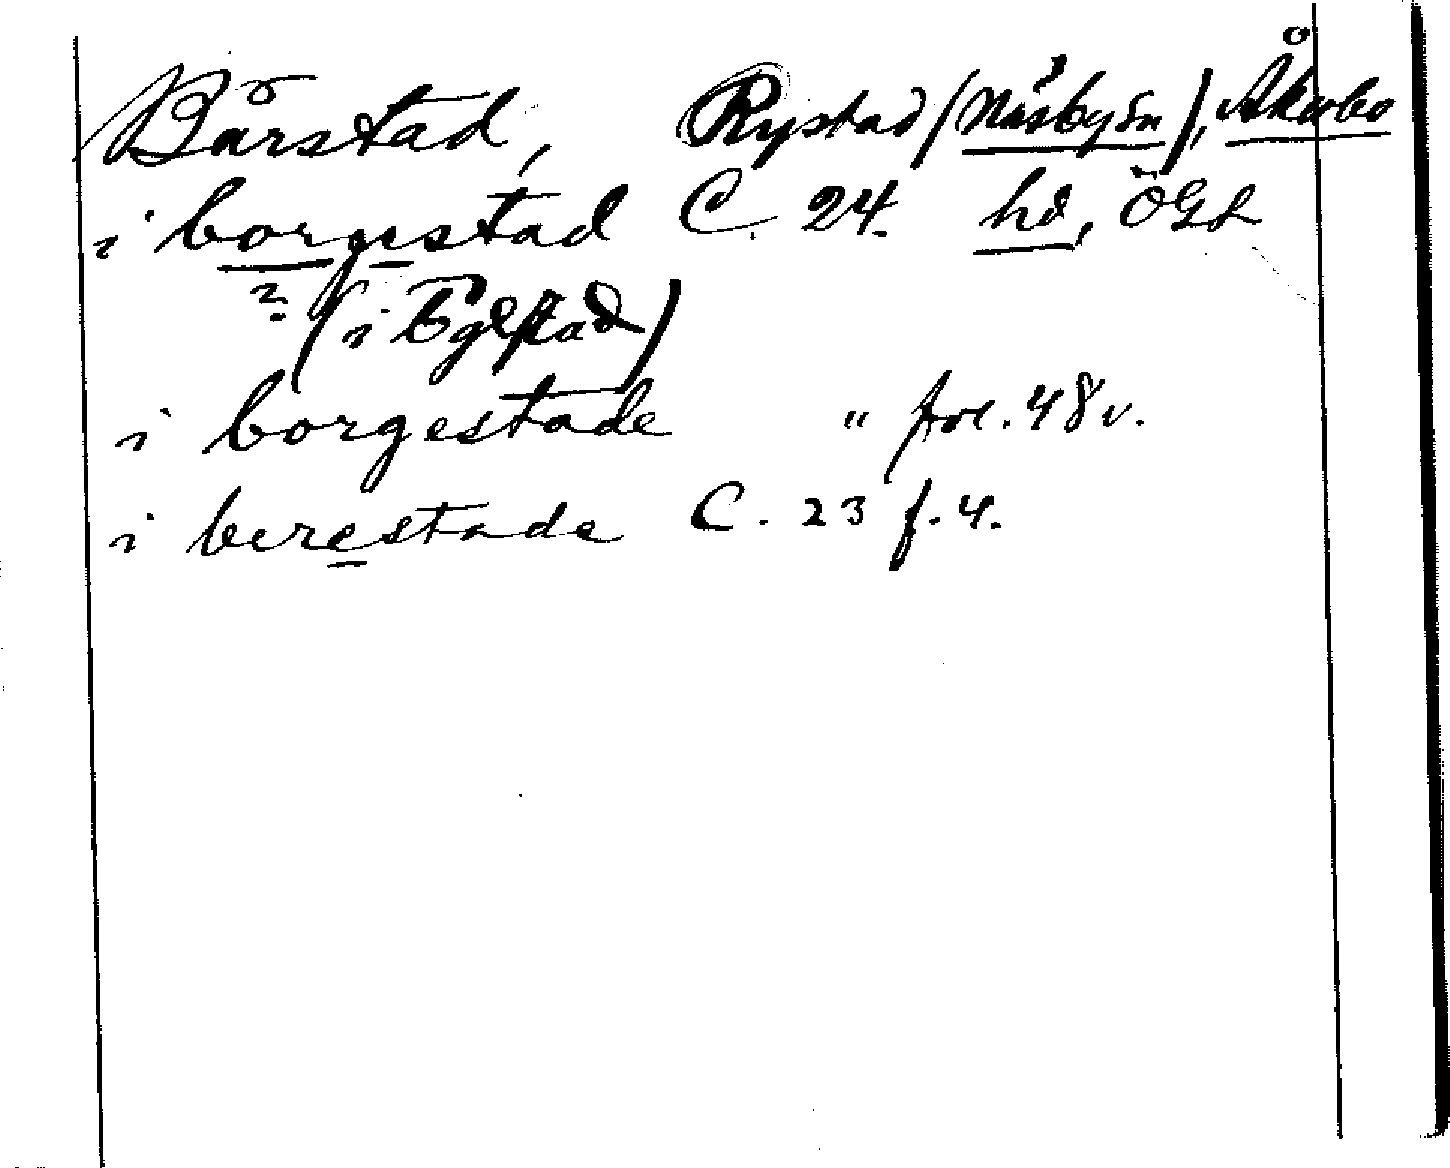 Bårstad, Rystad (Näsbyån), Åkerbo
i borgestad C. 24. hd, ÖGL
? (i bgestad)
i borgestade " fol. 48 v.
i berestade C. 23 f. 4.